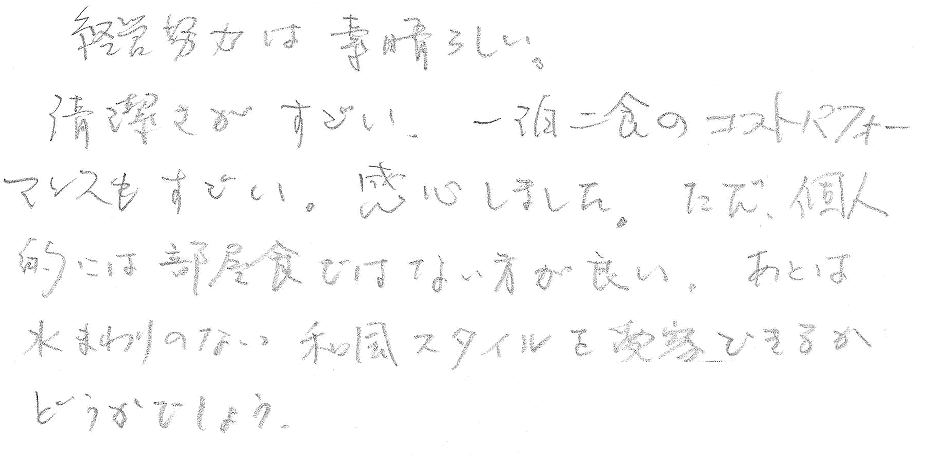 経営努力は素晴らしい。
清潔さがすごい。一泊二食のコストパフォー
マンスもすごい。感心しました。ただ、個人
的には部屋食ではない方が良い。あとは
水まわりのない和風スタイルを できるか
どうかでしょう。